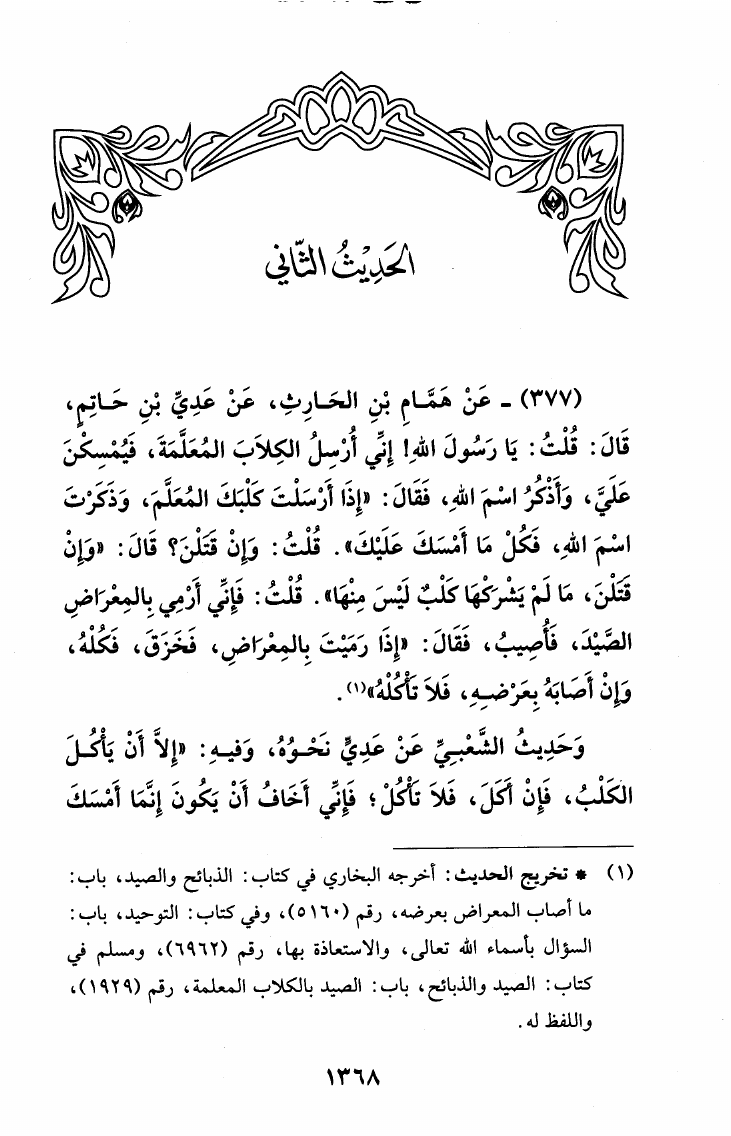 الحَدِيْثُ الثَّاني
(٣٧٧) ـ عَنْ هَمَّامِ بْنِ الحَارِثِ، عَنْ عَدِيِّ بْنِ حَاتِمٍ،
قَالَ: قُلْتُ: يَا رَسُولَ اللهِ! إِنِّي أُرْسِلُ الكِلاَبَ المُعَلَّمَةَ، فَيُمْسِكْنَ
عَلَيَّ، وَأَذْكُرُ اسْمَ اللهِ، فَقَالَ: «إِذَا أَرْسَلْتَ كَلْبَكَ المُعَلَّمَ، وَذَكَرْتَ
اسْمَ اللهِ، فَكُلْ مَا أَمْسَكَ عَلَيْكَ». قُلْتُ: وَإِنْ قَتَلْنَ؟ قَالَ: «وَإِنْ
قَتَلْنَ، مَا لَمْ يَشْرَكْهَا كَلْبٌ لَيْسَ مِنْهَا». قُلْتُ: فَإِنِّي أَرْمِي بِالمِعْرَاضِ
الصَّيْدَ، فَأُصِيبُ، فَقَالَ: «إِذَا رَمَيْتَ بِالمِعْرَاضِ، فَخَزَقَ، فَكُلْهُ،
وَإِنْ أَصَابَهُ بِعَرْضِهِ، فَلاَ تَأْكُلْهُ»(١).
وَحَدِيثُ الشَّعْبِيِّ عَنْ عَدِيٍّ نَحْوُهُ، وَفيهِ: «إِلاَّ أَنْ يَأْكُلَ
الكَلْبُ، فَإِنْ أَكَلَ، فَلاَ تَأْكُلْ؛ فَإِنِّي أَخَافُ أَنْ يَكُونَ إِنَّمَا أَمْسَكَ
(١) * تخريج الحديث: أخرجه البخاري في كتاب: الذبائح والصيد، باب:
ما أصاب المعراض بعرضه، رقم (٥١٦٠)، وفي كتاب: التوحيد، باب:
السؤال بأسماء الله تعالى، والاستعاذة بها، رقم (٦٩٦٢)، ومسلم في
كتاب: الصيد والذبائح، باب: الصيد بالكلاب المعلمة، رقم (١٩٢٩)،
واللفظ له.
١٣٦٨